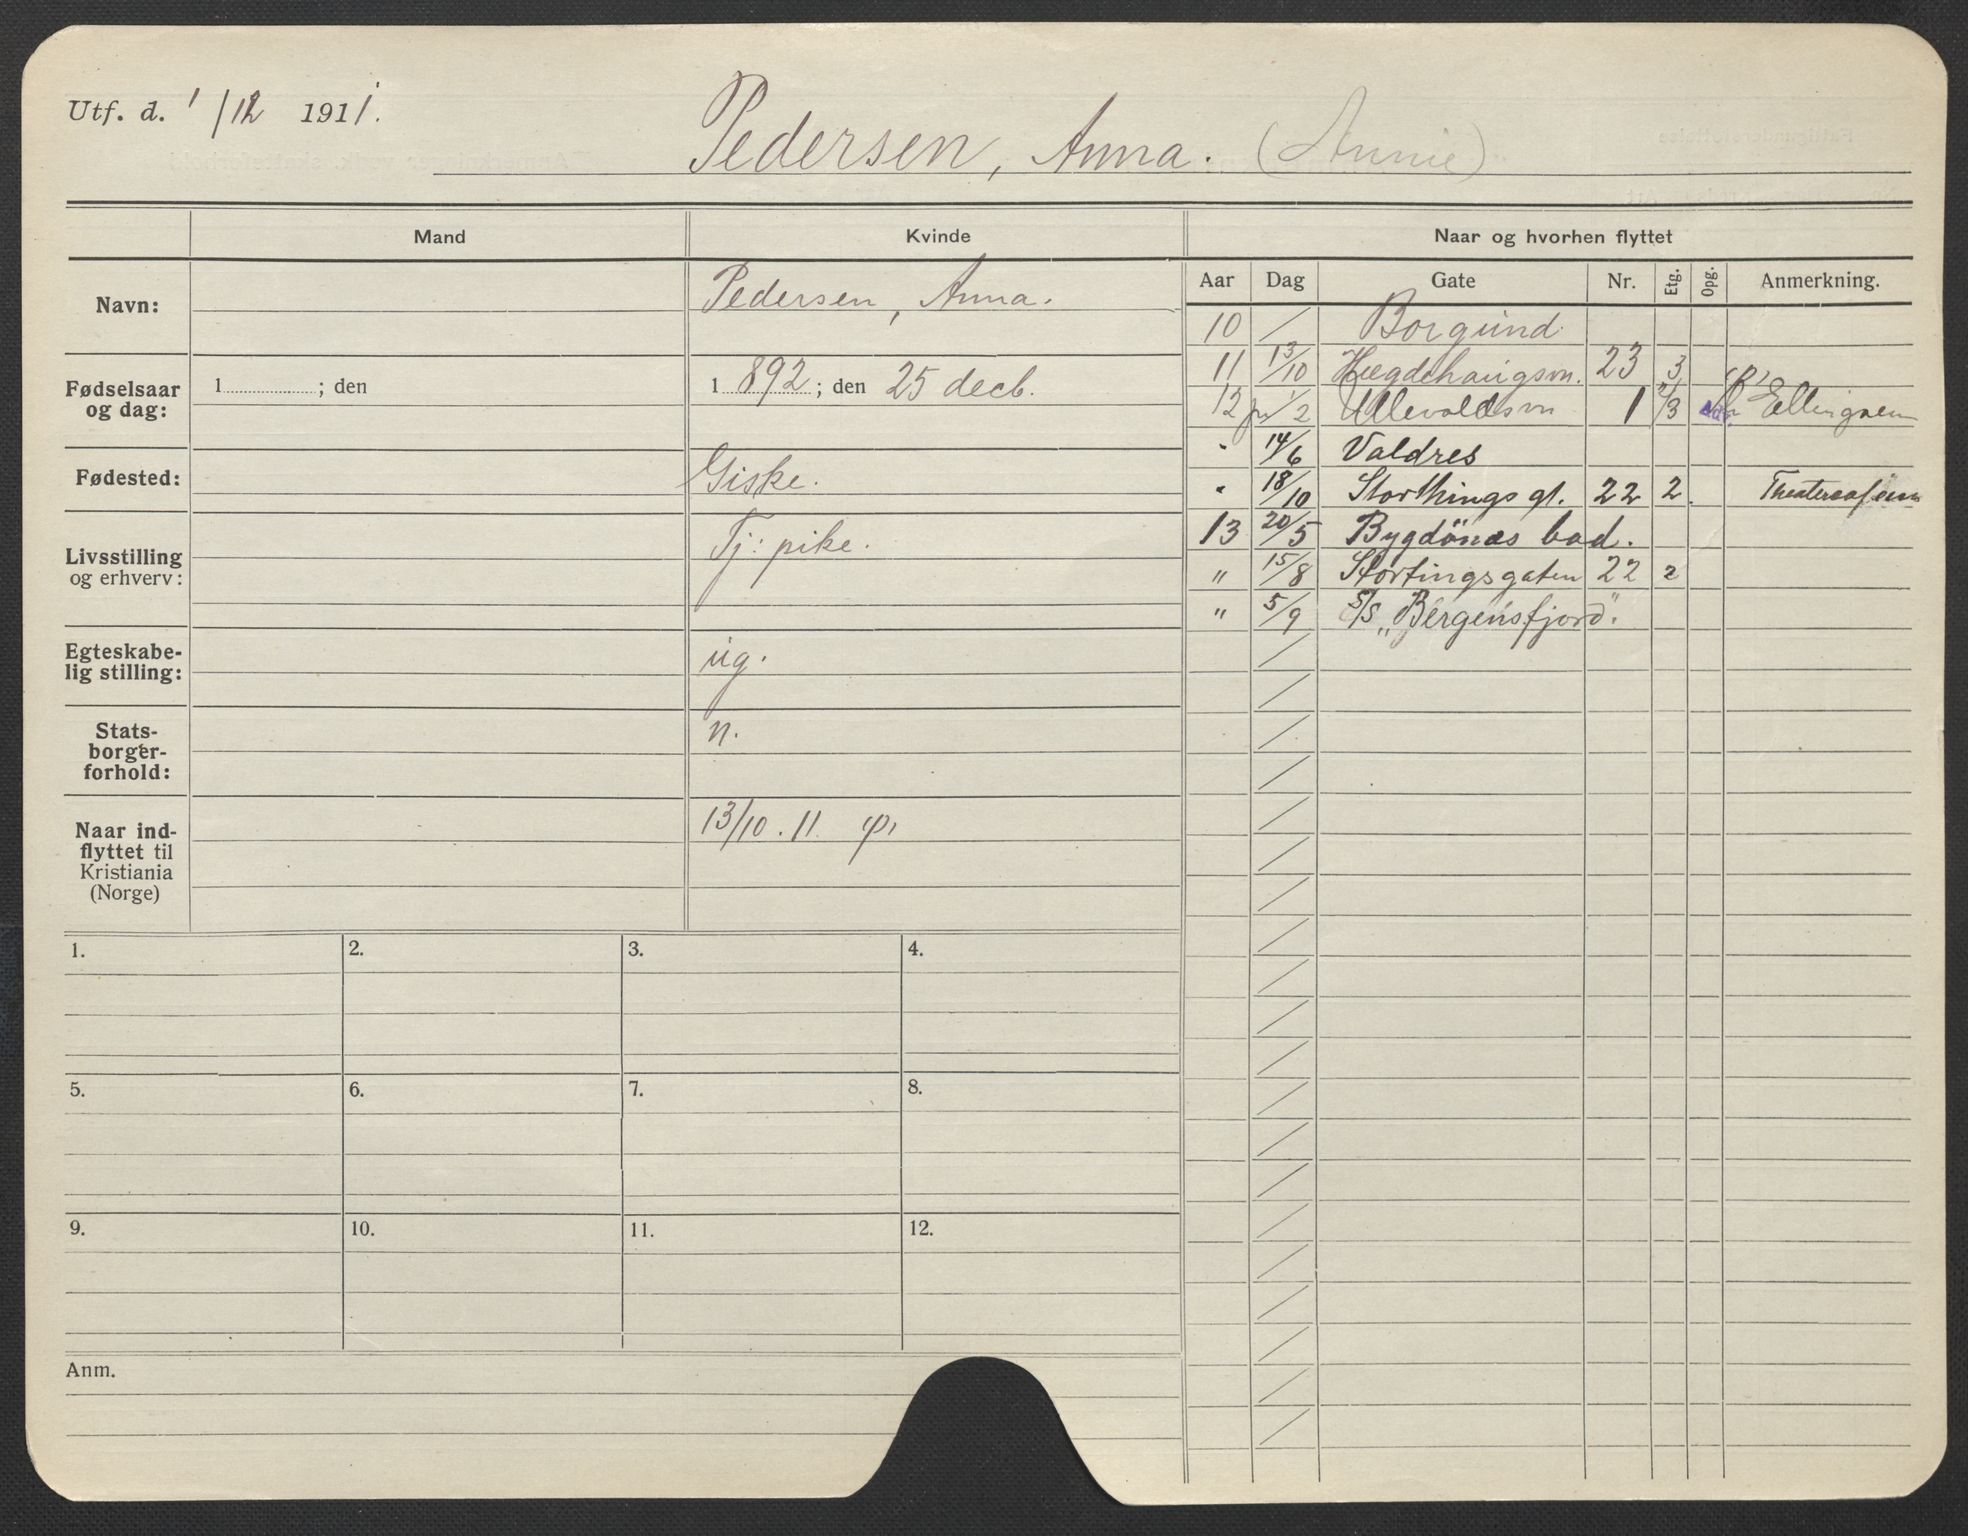 Utf. d. 1/12 1911.
Pedersen, Anna. (Annie)
Mand
Kvinde
Naar og hvorhen flyttet
Navn:
Pedersen, Anna.
Fødselsaar og dag:
1 ; den
1 892 ; den 25 decb.
Fødested:
Giske.
Livsstilling og erhverv:
Tj: pike.
Egteskabe-
lig stilling:
ug.
Stats-
borger-
forhold:
n.
Naar ind-
flyttet til
Kristiania
(Norge)
13/10. 11.
Aar Dag Gate Nr. Etg. Opg. Anmerkning.
10 / Borgund.
11 13/10 Hægdehaugsvn. 23 3
12 1/2 Ullevoldsvn 1 3
" 14/6 Valdres
" 18/10 Storthings gt. 22 2. Theatercafeen
13 20/5 Bygdönæs bad.
" 15/8 Stortingsgaten 22 2
" 5/9 S/S „Bergensfjord".
1. 2. 3. 4.
5. 6. 7. 8.
9. 10. 11. 12.
Anm.